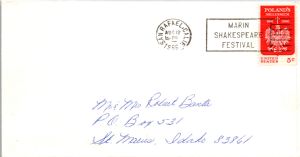 SAN RAFAEL, CALIF.
PM
1966
MARIN
SHAKESPEARE
FESTIVAL
POLAND'S
MILLENNIUM
UNITED STATES 5c
Mr & Mrs Robert
P.O. Box 531
St Maries, Idaho 83861